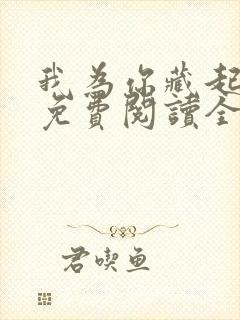 我为你藏起
免費閱讀全
君喫鱼